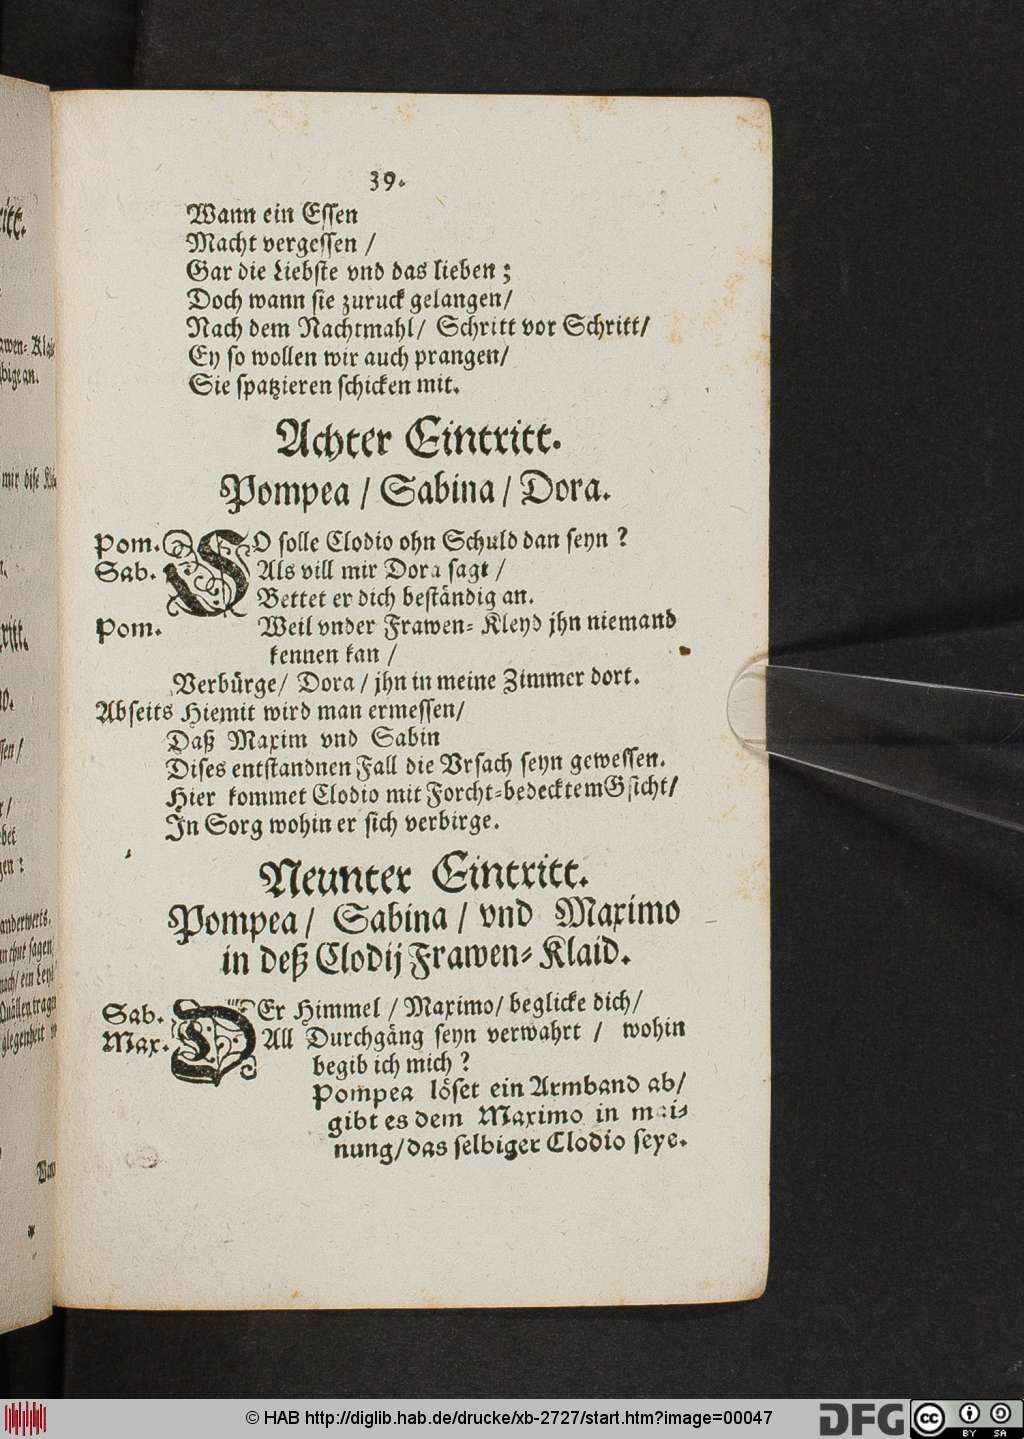 39.
Wann ein Essen
Macht vergessen /
Gar die Liebste vnd das lieben ;
Doch wann sie zuruck gelangen/
Nach dem Nachtmahl/ Schritt vor Schritt/
Ey so wollen wir auch prangen/
Sie spatzieren schicken mit.
Achter Eintritt.
Pompea / Sabina / Dora.
Pom. SO solle Clodio ohn Schuld dan seyn ?
Sab. Als vill mir Dora sagt /
Bettet er dich beständig an.
Pom. Weil vnder Frawen= Kleyd jhn niemand
kennen kan /
Verbürge/ Dora / jhn in meine Zimmer dort.
Abseits Hiemit wird man ermessen/
Daß Maxim vnd Sabin
Dises entstandnen Fall die Vrsach seyn gewessen.
Hier kommet Clodio mit Forcht=bedecktem Gsicht/
In Sorg wohin er sich verbirge.
Neunter Eintritt.
Pompea/ Sabina / vnd Maximo
in deß Clodij Frawen= Klaid.
Sab. DEr Himmel / Maximo/ beglicke dich/
Max. All Durchgäng seyn verwahrt / wohin
begib ich mich ?
Pompea löset ein Armband ab/
gibt es dem Maximo in mai=
nung/das selbiger Clodio seye.
© HAB http://diglib.hab.de/drucke/xb-2727/start.htm?image=00047
DFG
cc BY SA